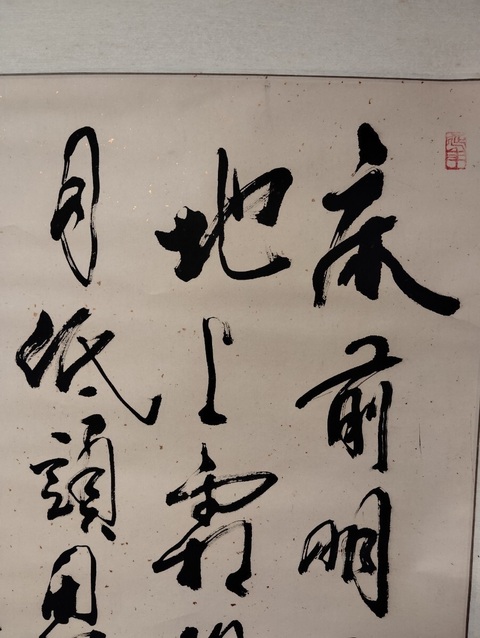 床前明
地上霜
月低頭思